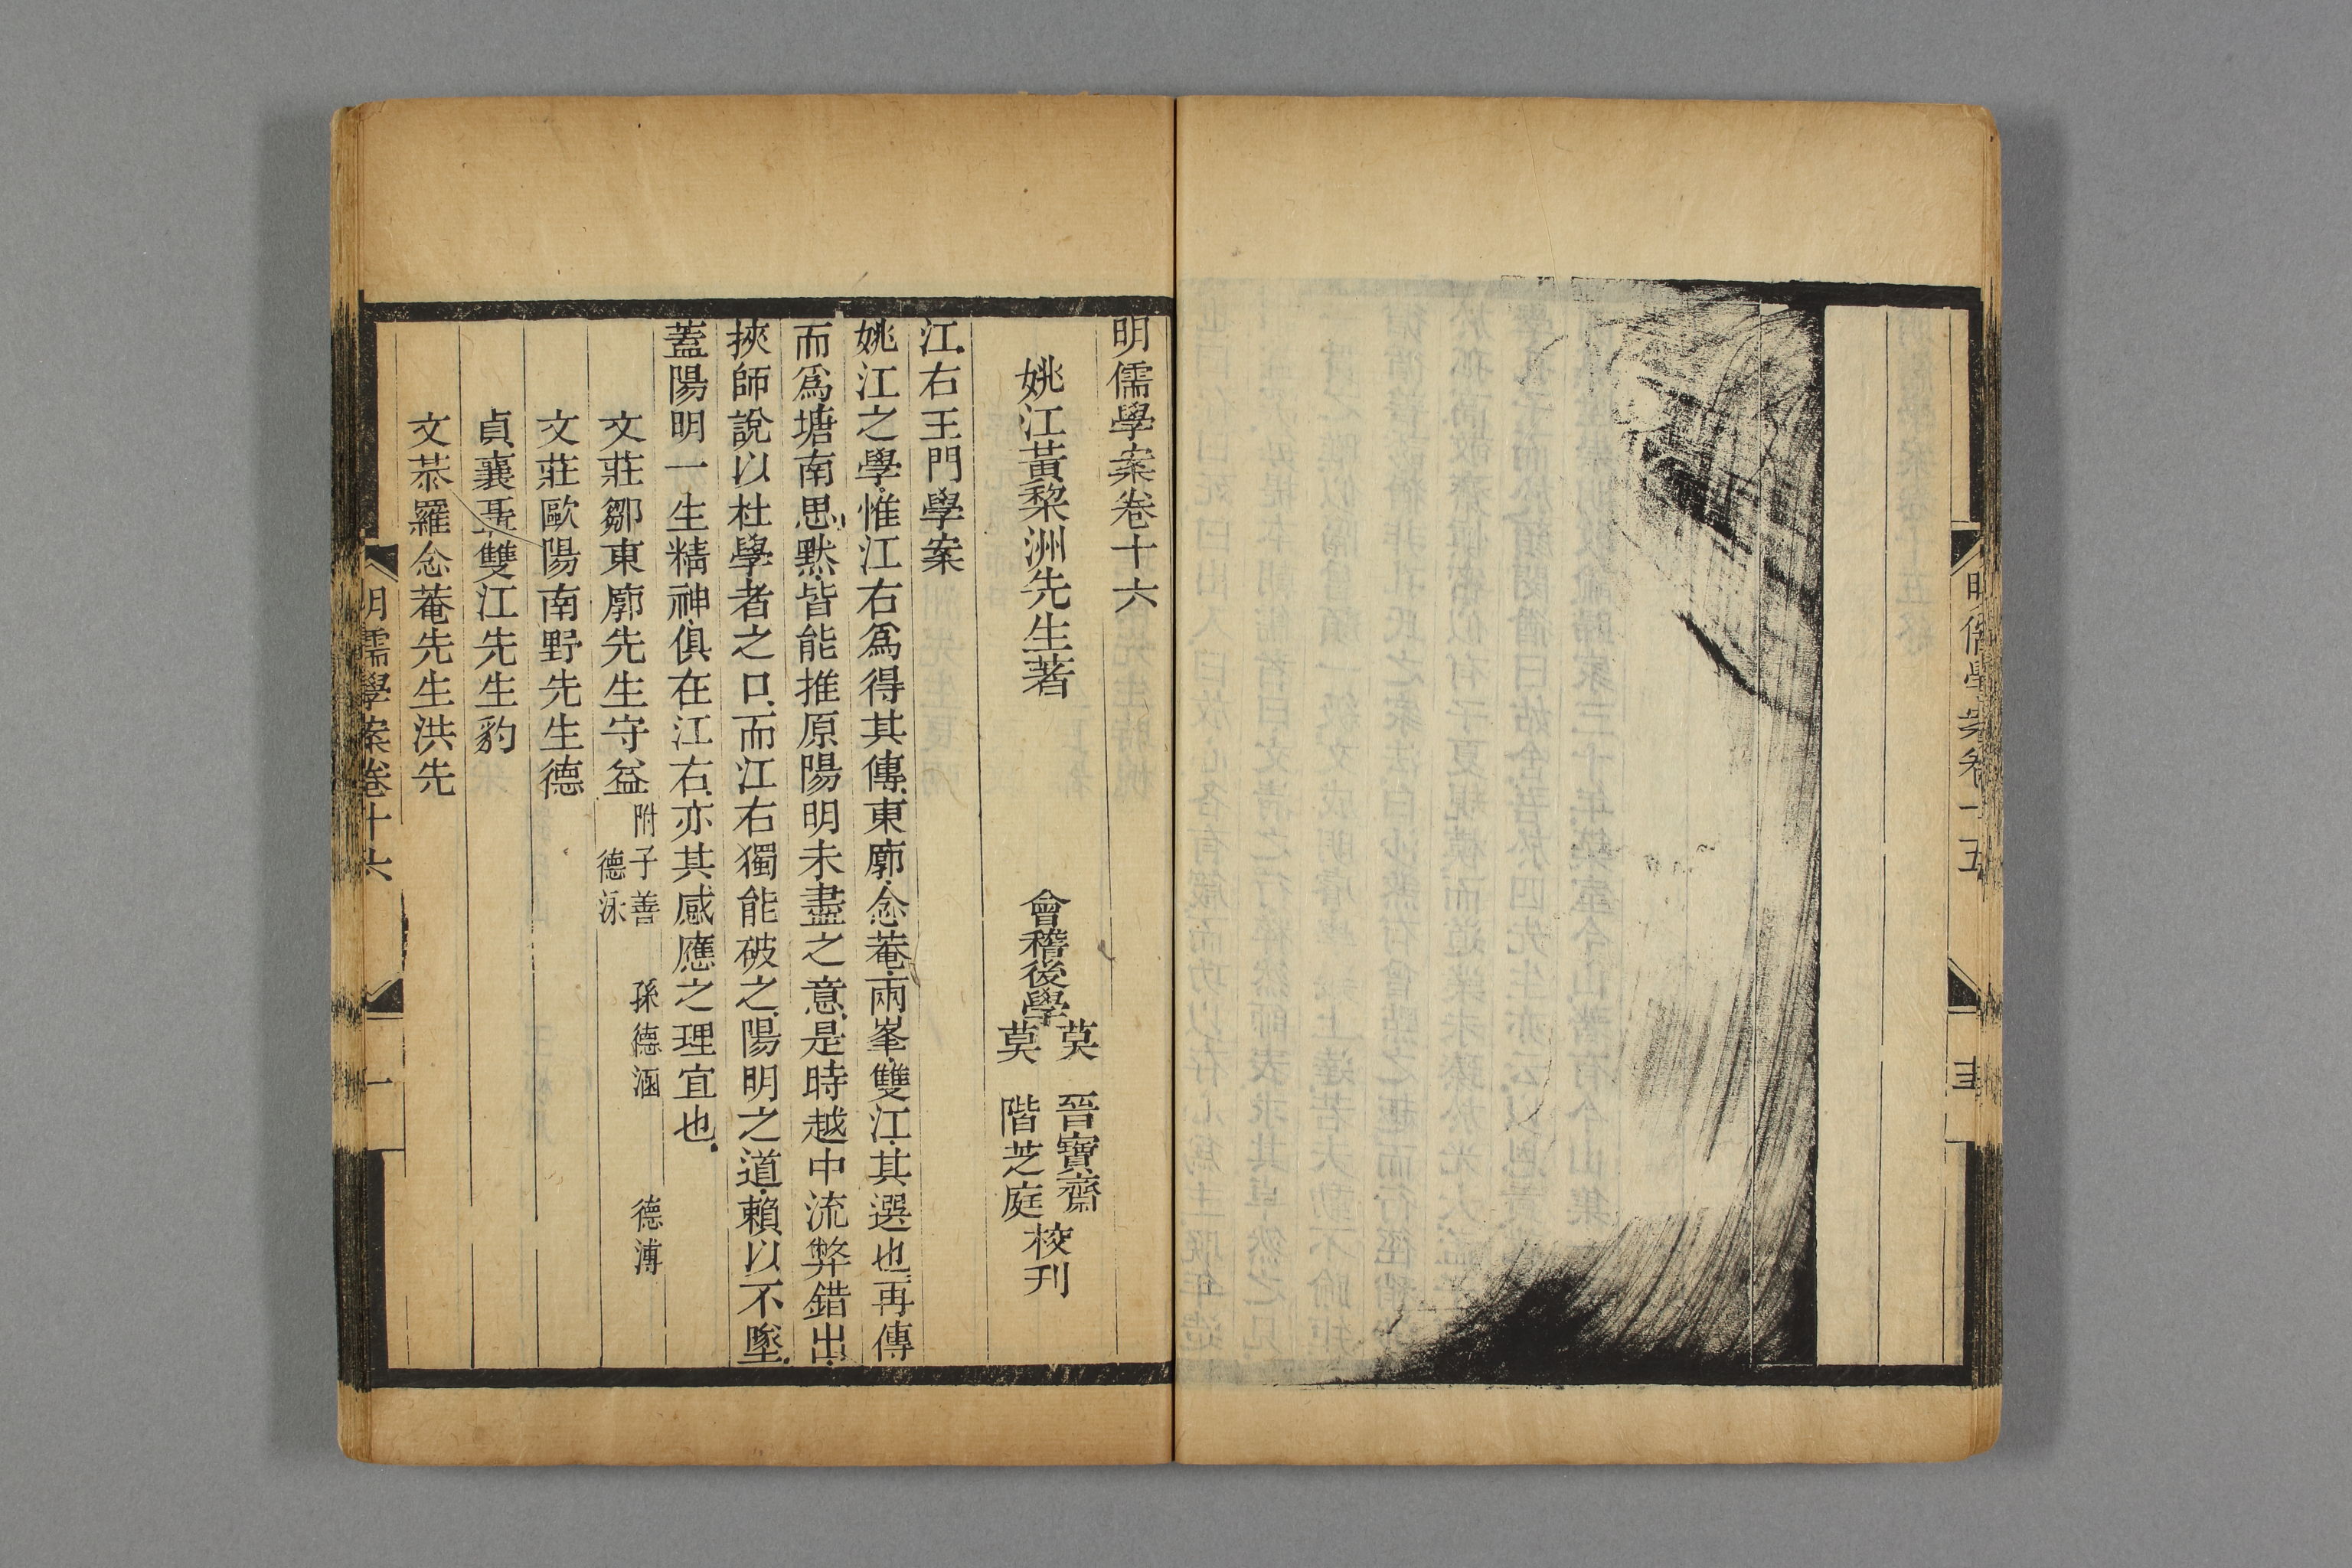 明儒學案卷十五
明儒學案卷十六
姚江黃棃洲先生著 會稽後學 莫 晉寶齋 莫 階芝庭 校刊
江右王門學案
姚江之學惟江右爲得其傳東廓念菴兩峯雙江其選也再傳
而爲塘南思默皆能推原陽明未盡之意是時越中流弊錯出
挾師說以杜學者之口而江右獨能破之陽明之道賴以不墜
蓋陽明一生精神俱在江右亦其感應之理宜也
文莊鄒東廓先生守益 附子善 孫德涵 德溥 德泳
文莊歐陽南野先生德
貞襄聶雙江先生豹
文恭羅念菴先生洪先
明儒學案卷十六 一